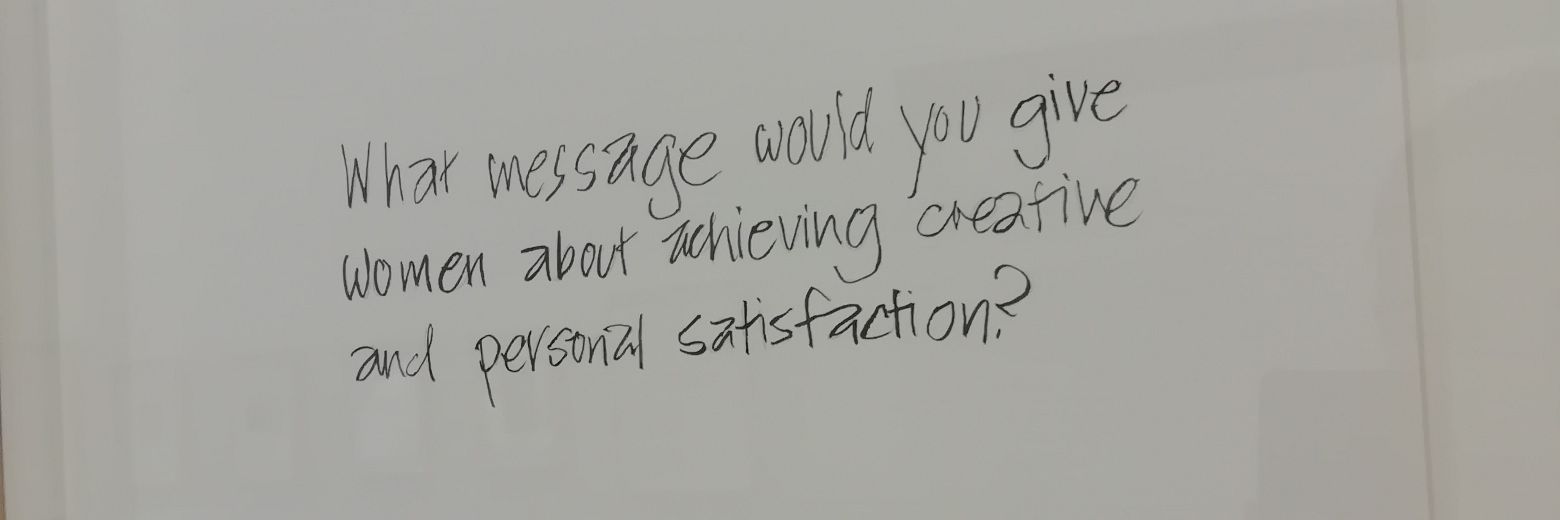 What message would you give
women about achieving creative
and personal satisfaction?